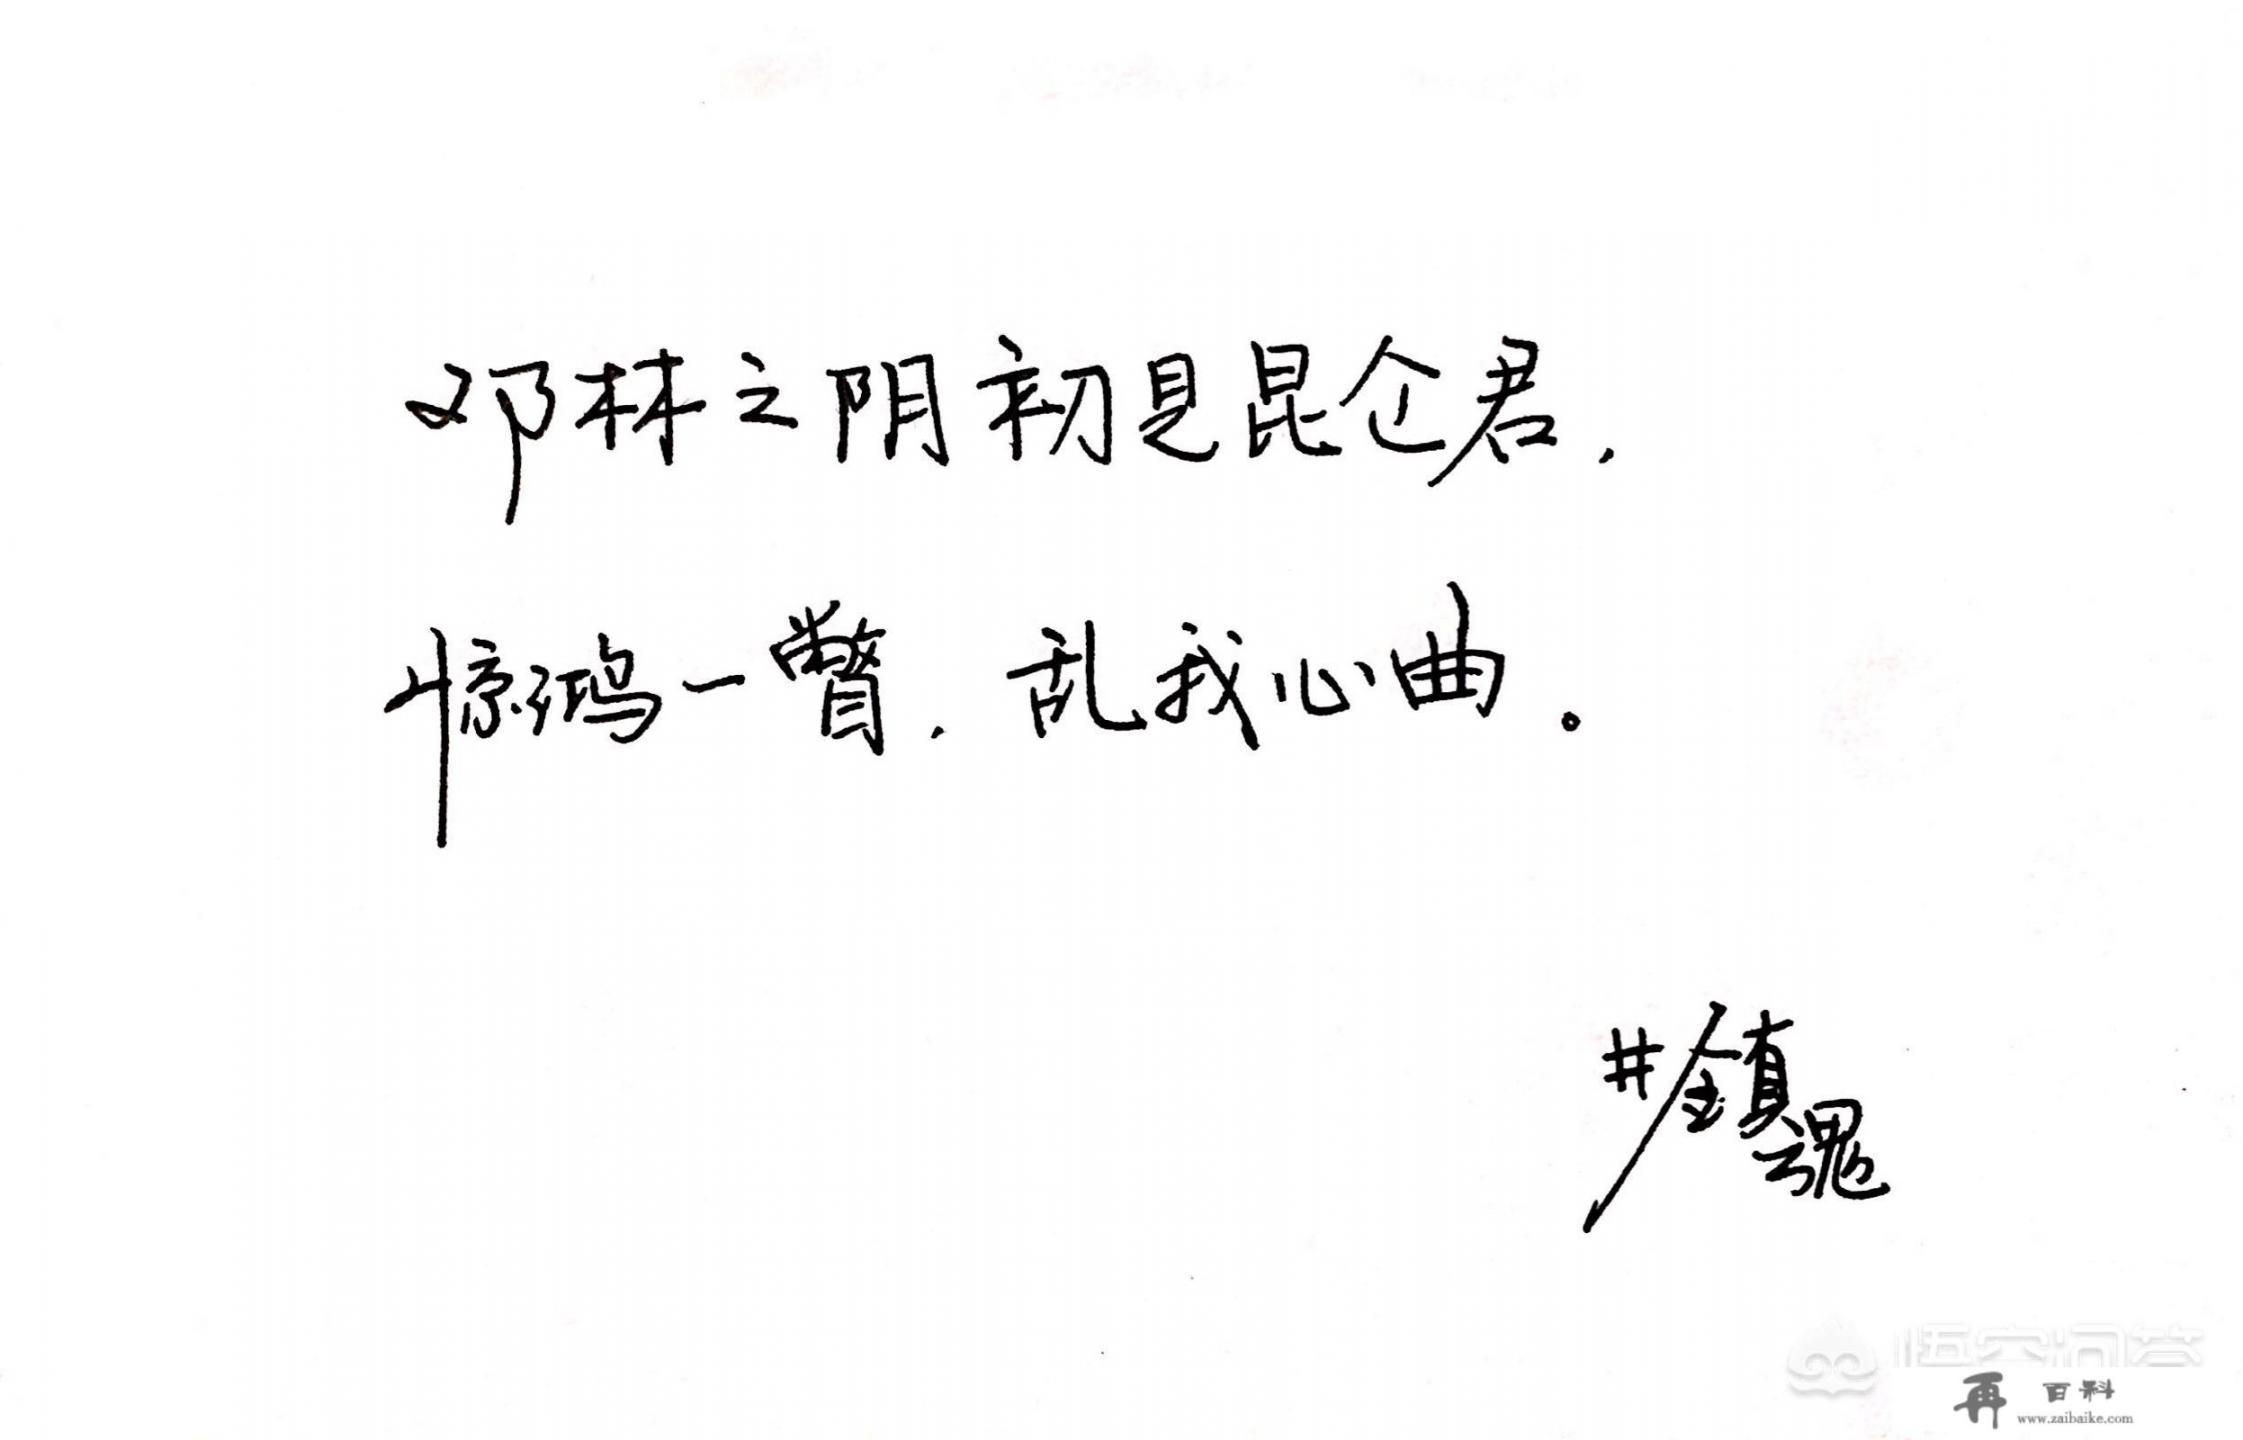 邓林之阴初见昆仑君，
惊鸿一瞥，乱我心曲。
#镇魂
悟空问答
再 百科
www.zaibaike.com